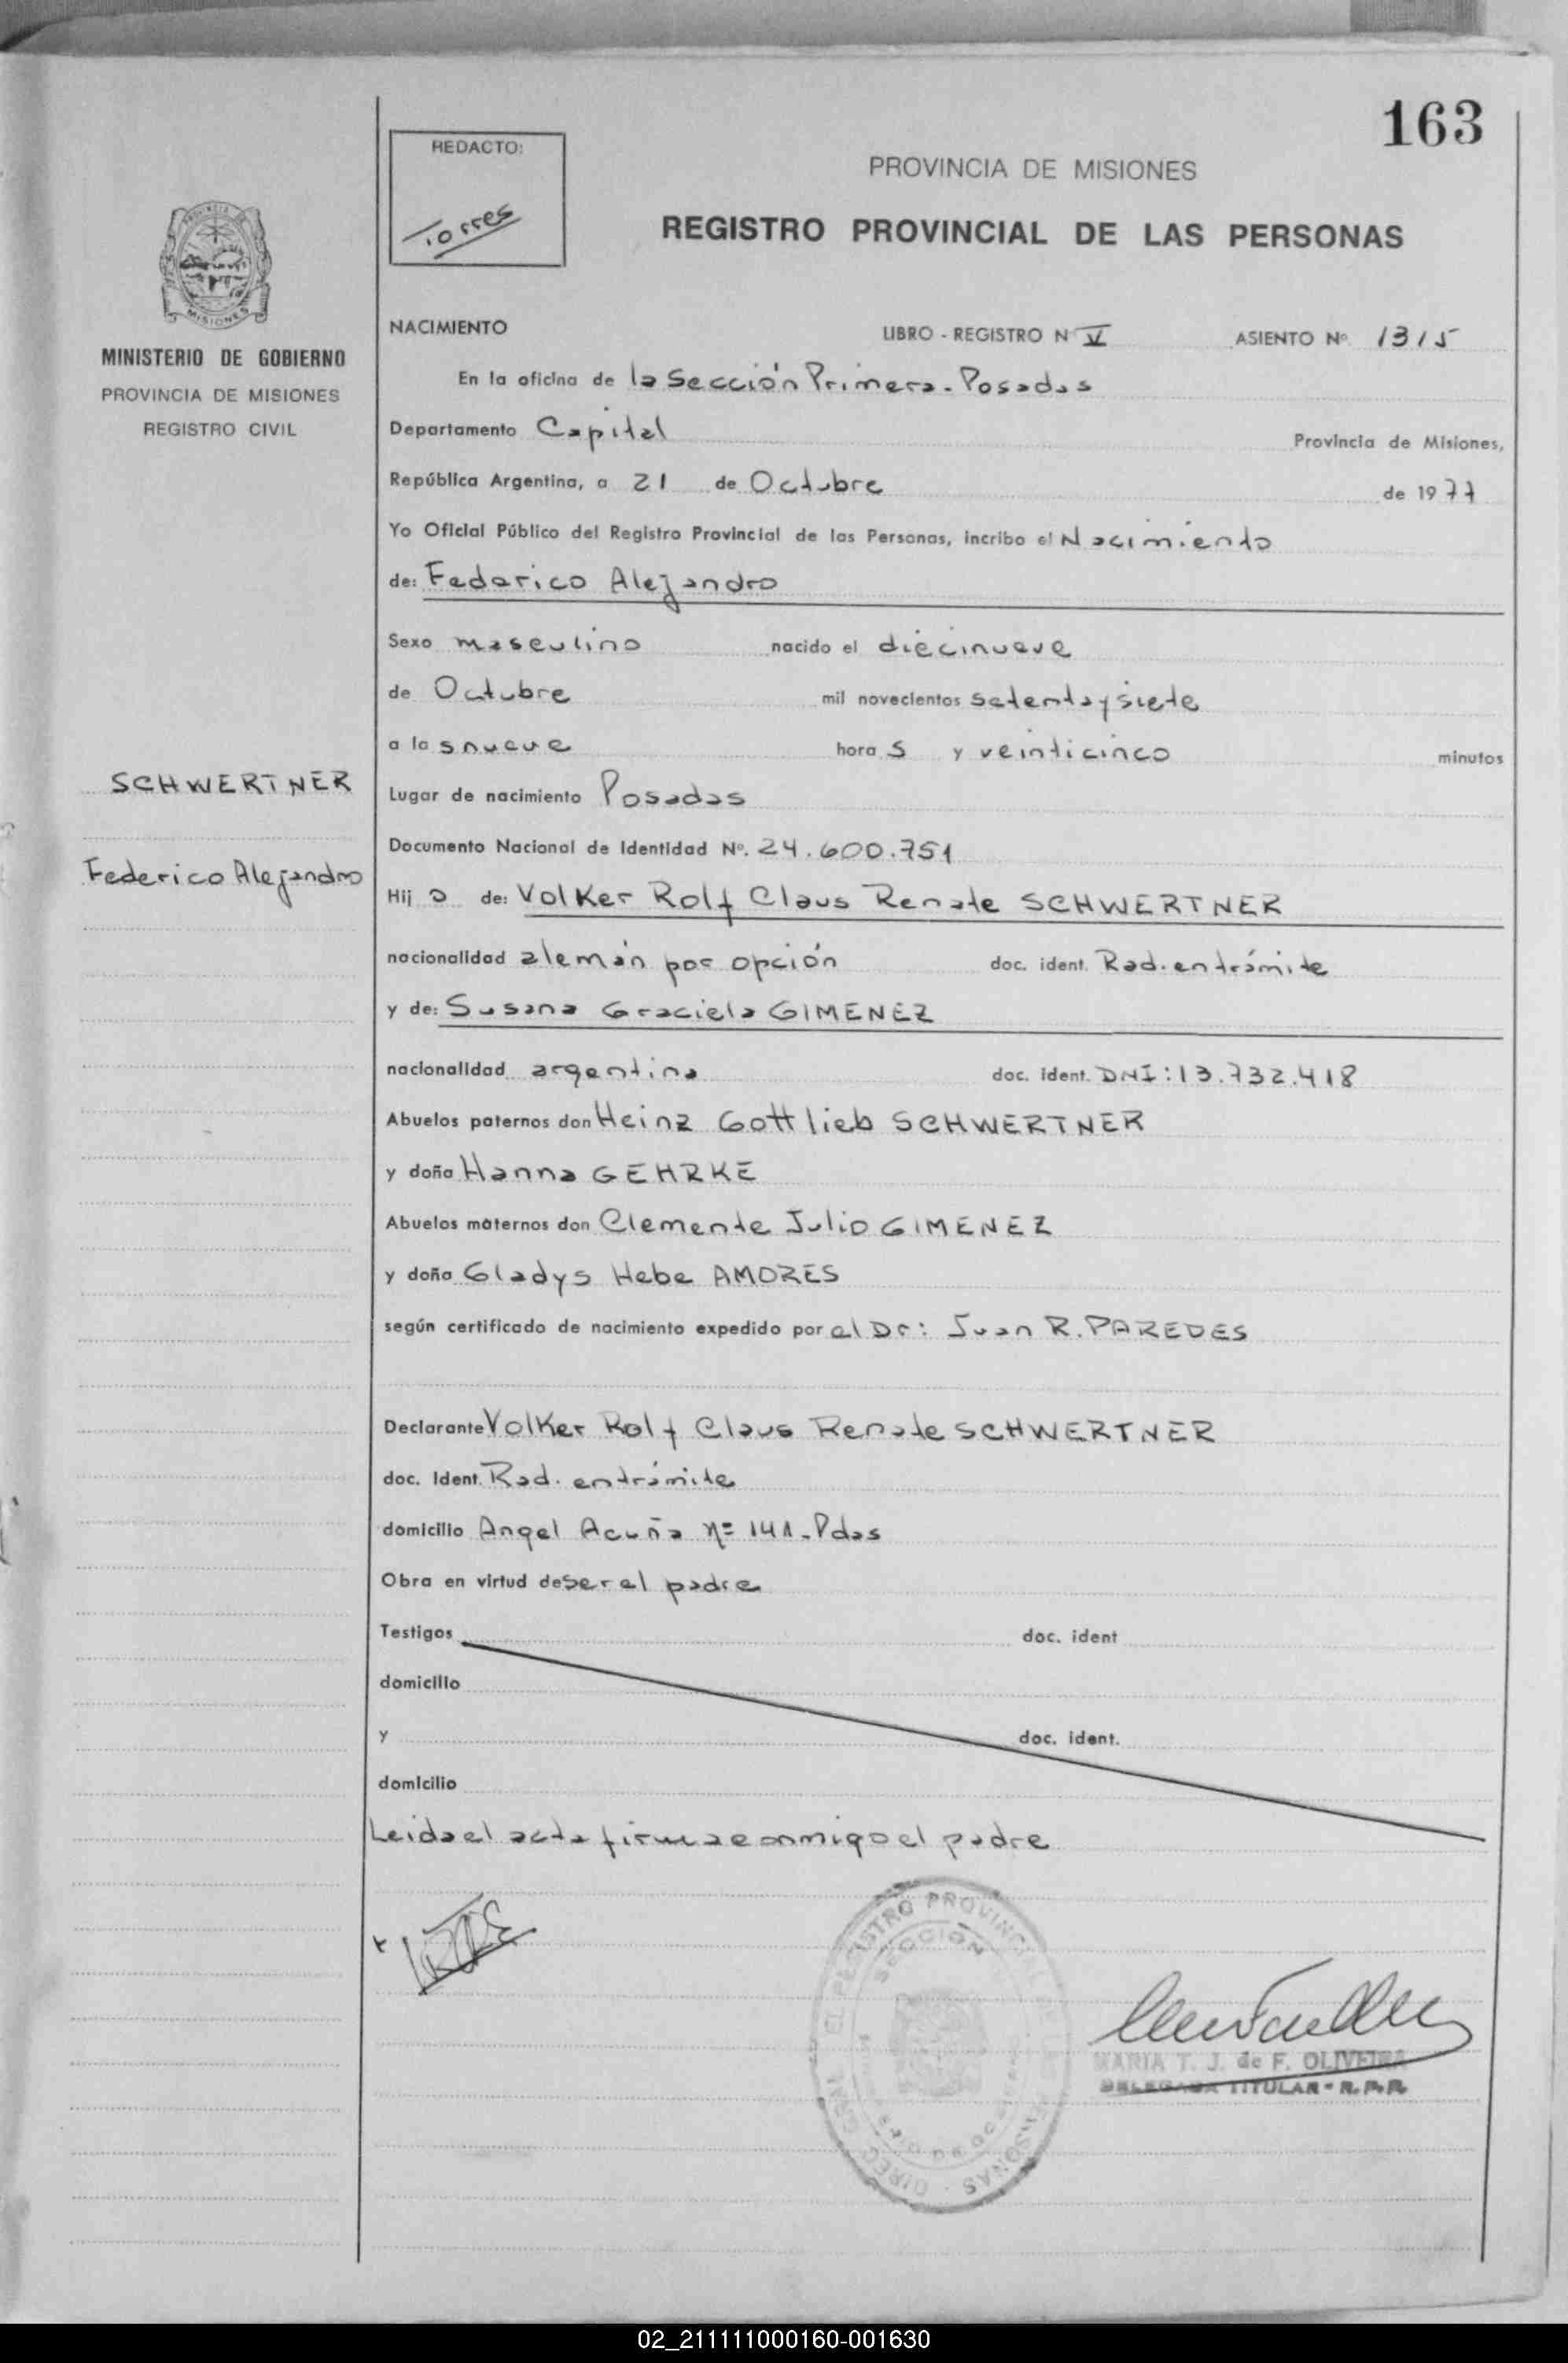 163
REDACTO:
Torres
PROVINCIA DE MISIONES
REGISTRO PROVINCIAL DE LAS PERSONAS
MISIONES
MINISTERIO DE GOBIERNO
PROVINCIA DE MISIONES
REGISTRO CIVIL
NACIMIENTO LIBRO - REGISTRO N V ASIENTO Nº 1315
En la oficina de la Sección Primera - Posadas
Departamento Capital Provincia de Misiones,
República Argentina, a 21 de Octubre de 1977
Yo Oficial Público del Registro Provincial de las Personas, incribo el Nacimiento
de: Federico Alejandro
Sexo masculino nacido el diecinueve
de Octubre mil novecientos setenta y siete
a las nueve horas y veinticinco minutos
SCHWERTNER
Federico Alejandro
Lugar de nacimiento Posadas
Documento Nacional de Identidad Nº. 24.600.751
Hijo de: Volker Rolf Claus Renate SCHWERTNER
nacionalidad alemán por opción doc. ident. Rad. en trámite
y de: Susana Graciela GIMENEZ
nacionalidad argentina doc. ident. DNI: 13.732.418
Abuelos paternos don Heinz Gottlieb SCHWERTNER
y doña Hanna GEHRKE
Abuelos maternos don Clemente Julio GIMENEZ
y doña Gladys Hebe AMORES
según certificado de nacimiento expedido por el Dr: Juan R. PAREDES
Declarante Volker Rolf Claus Renate SCHWERTNER
doc. Ident. Rad. en trámite
domicilio Angel Acuña Nº 141 - Pdas
Obra en virtud de ser el padre
Testigos doc. ident
domicilio
y doc. ident.
domicilio
Leida el acta firma conmigo el padre
MARIA T. J. de F. OLIVEIRA
DELEGADA TITULAR - R.P.P.
02_211111000160-001630